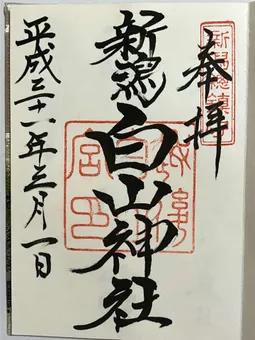 奉拝
新潟総鎮守
新潟白山神社
平成三十一年三月一日